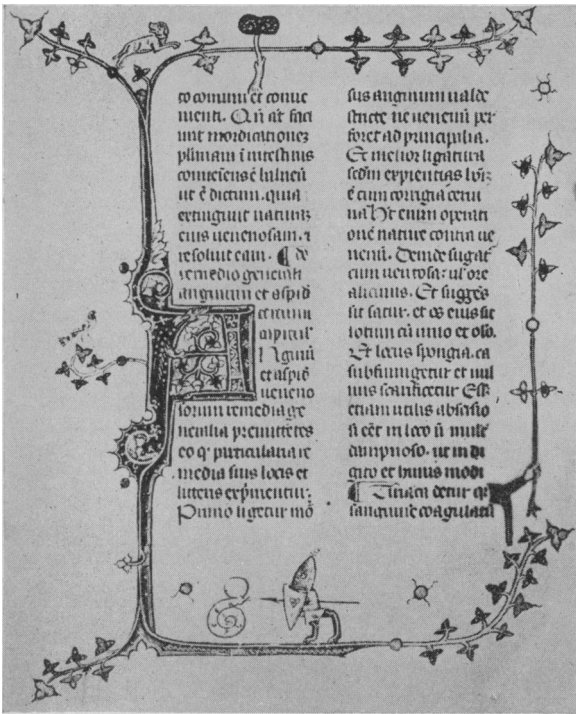 to comuni et conue
nienti. Qn̄ at̄ faci
unt mordicationez
pl̄imam ī intestinis
conueiens ē balneū
ut ē dictum. quia
extinguit naturaz
eius uenenosam. ⁊
resoluit eam. ¶ de
remedio generali
anguium et aspid
capitul̓
Nguiū
et aspid̓
ueneno
sorum remedia ge
neralia premittētes
eo qͥ particularia re
media suis locis et
litteris exp̄mentur.
Primo ligetur mō
sus anguium ualde
stricte ne uenenū per
foret ad principalia.
Et melior ligatura
ē cum corrigia cerui
na. Hēt enim operati
onē natiue contra ue
nenū. Deinde sugat̄
cum uentosa: ul̓ ore
alicuius. Et sugēs
sit satur. et os eius sit
lotum cū uino et oleo.
Et locus spongia ca
etiam utilis abscisio
si eēt in loco n̄ mult̄
dampnoso. ut in di
gito et huius modi
¶ Tiriaca detur qͥ
sanguinē coagulatū